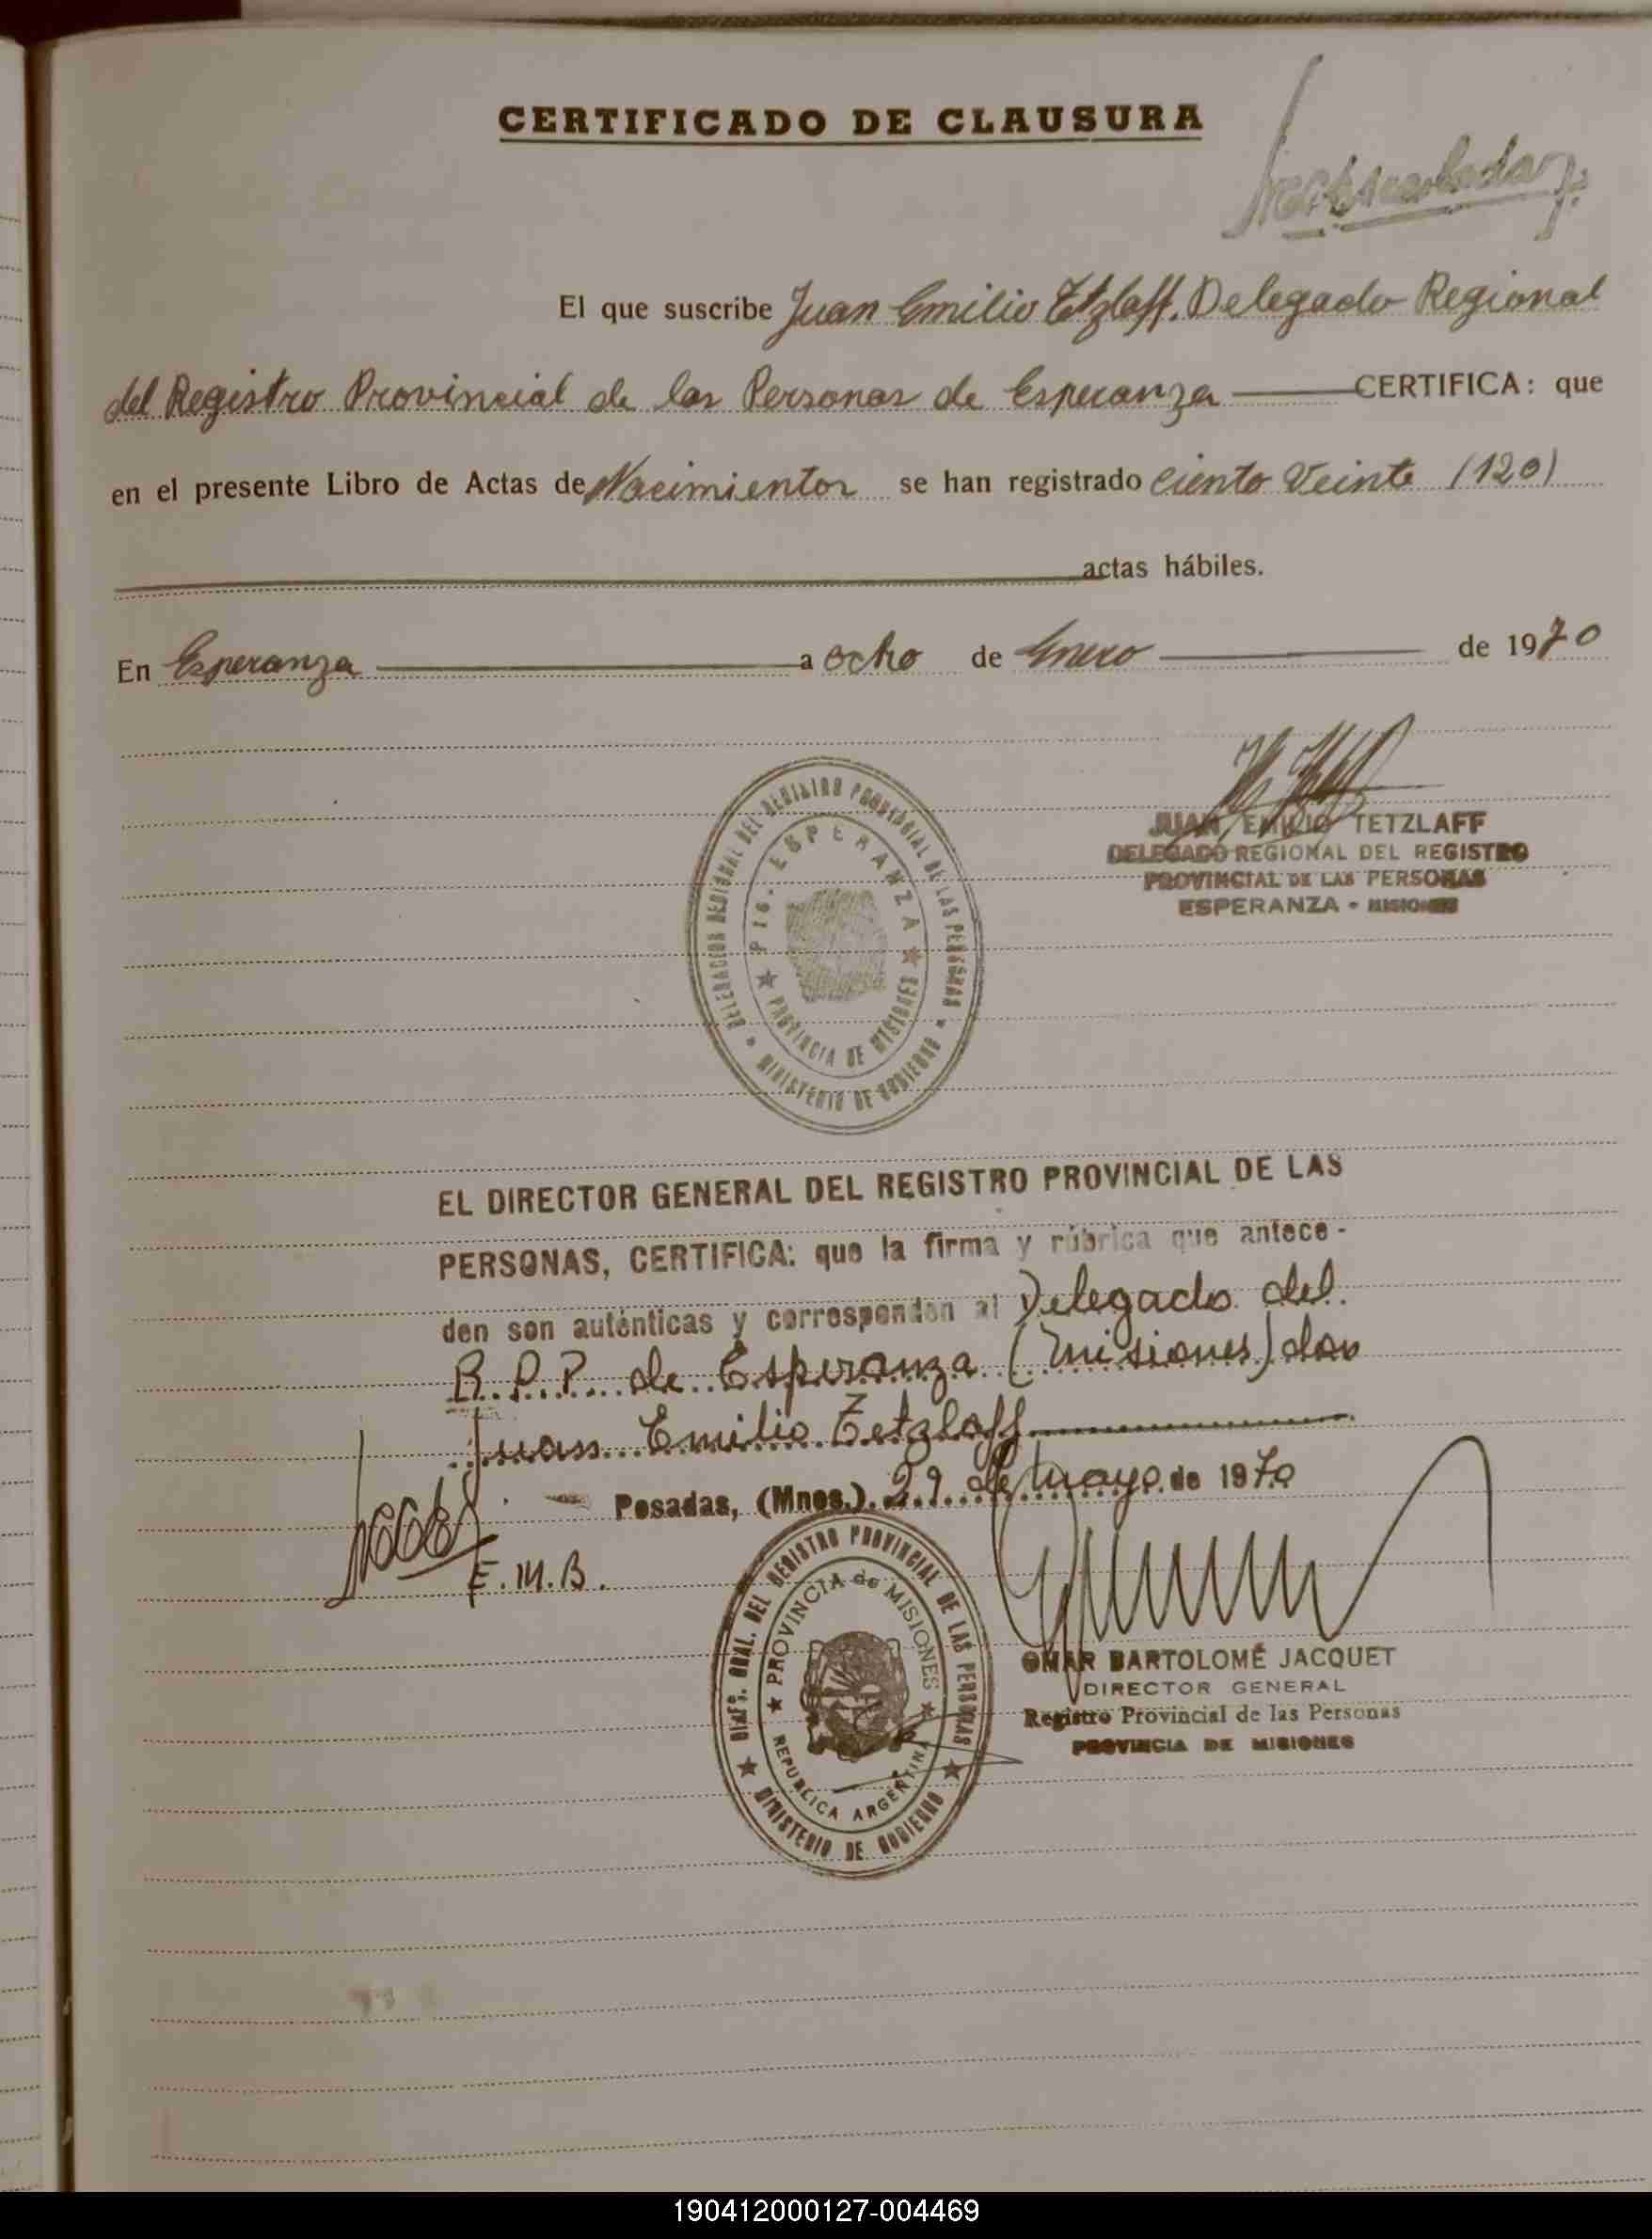 CERTIFICADO DE CLAUSURA
El que suscribe Juan Emilio Tetzlaff. Delegado Regional
del Registro Provincial de las Personas de Esperanza CERTIFICA: que
en el presente Libro de Actas de Nacimientos se han registrado ciento veinte (120)
actas hábiles.
En Esperanza a ocho de Enero de 1970
DELEGACION REGIONAL DEL REGISTRO PROVINCIAL DE LAS PERSONAS
PTO. ESPERANZA
PROVINCIA DE MISIONES
MINISTERIO DE GOBIERNO
JUAN EMILIO TETZLAFF
DELEGADO REGIONAL DEL REGISTRO
PROVINCIAL DE LAS PERSONAS
ESPERANZA - MISIONES
EL DIRECTOR GENERAL DEL REGISTRO PROVINCIAL DE LAS
PERSONAS, CERTIFICA: que la firma y rúbrica que antece-
den son auténticas y corresponden al Delegado del
R.P.P. de Esperanza (Misiones) don
Juan Emilio Tetzlaff
Posadas, (Mnes.) 29 de mayo de 1970
E.M.B.
GRAL. DEL REGISTRO PROVINCIAL DE LAS PERSONAS
PROVINCIA de MISIONES
REPUBLICA ARGENTINA
MINISTERIO DE GOBIERNO
OMAR BARTOLOMÉ JACQUET
DIRECTOR GENERAL
Registro Provincial de las Personas
PROVINCIA DE MISIONES
190412000127-004469